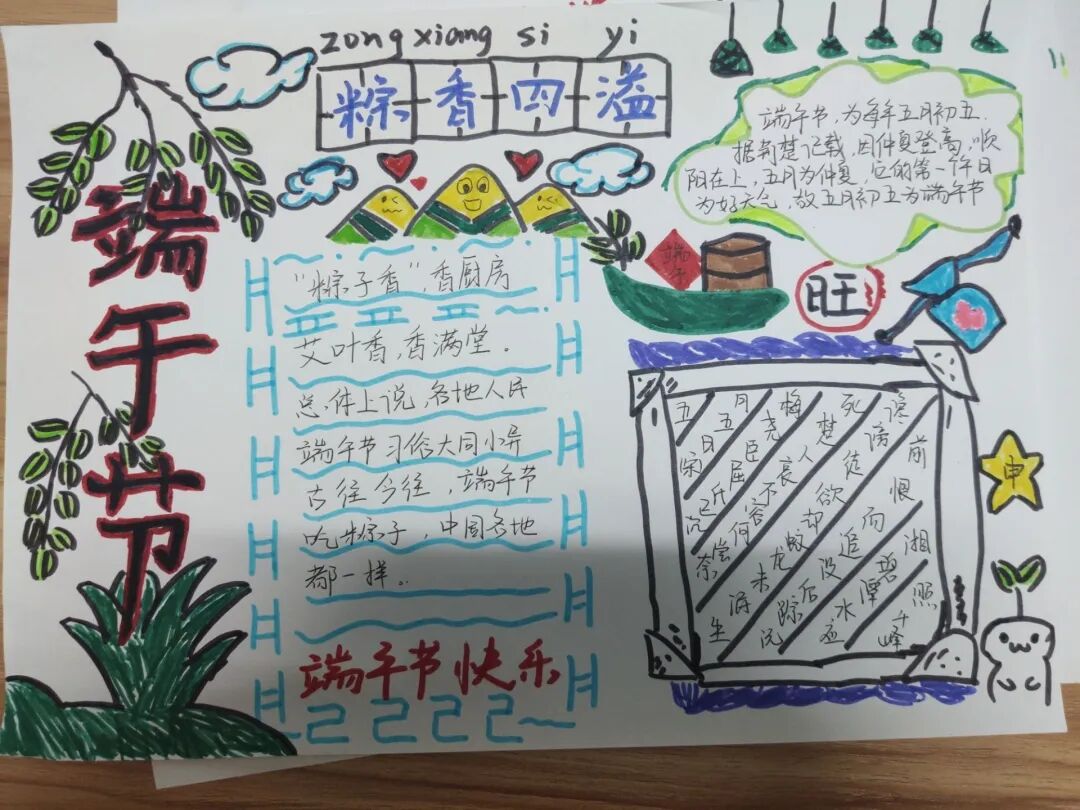 zong xiang si yi
粽香四溢
端午节
端午节,为每年五月初五.
据荆楚记载,因仲夏登高,顺
阳在上,五月为仲夏,它的第一个午日
为好天气,故五月初五为端午节
端午
旺
"粽子香",香厨房
艾叶香,香满堂.
总体上说,各地人民
端午节习俗大同小异
古往今往,端午节
吃粽子,中国各地
都一样.
端午节快乐
五
月五日宋
梅尧臣屈氏已沉
死楚人哀不容何尝奈
谗谤徒欲却蛟龙未泯生
前恨而追没后踪沅
湘碧潭水应
照千峰
申